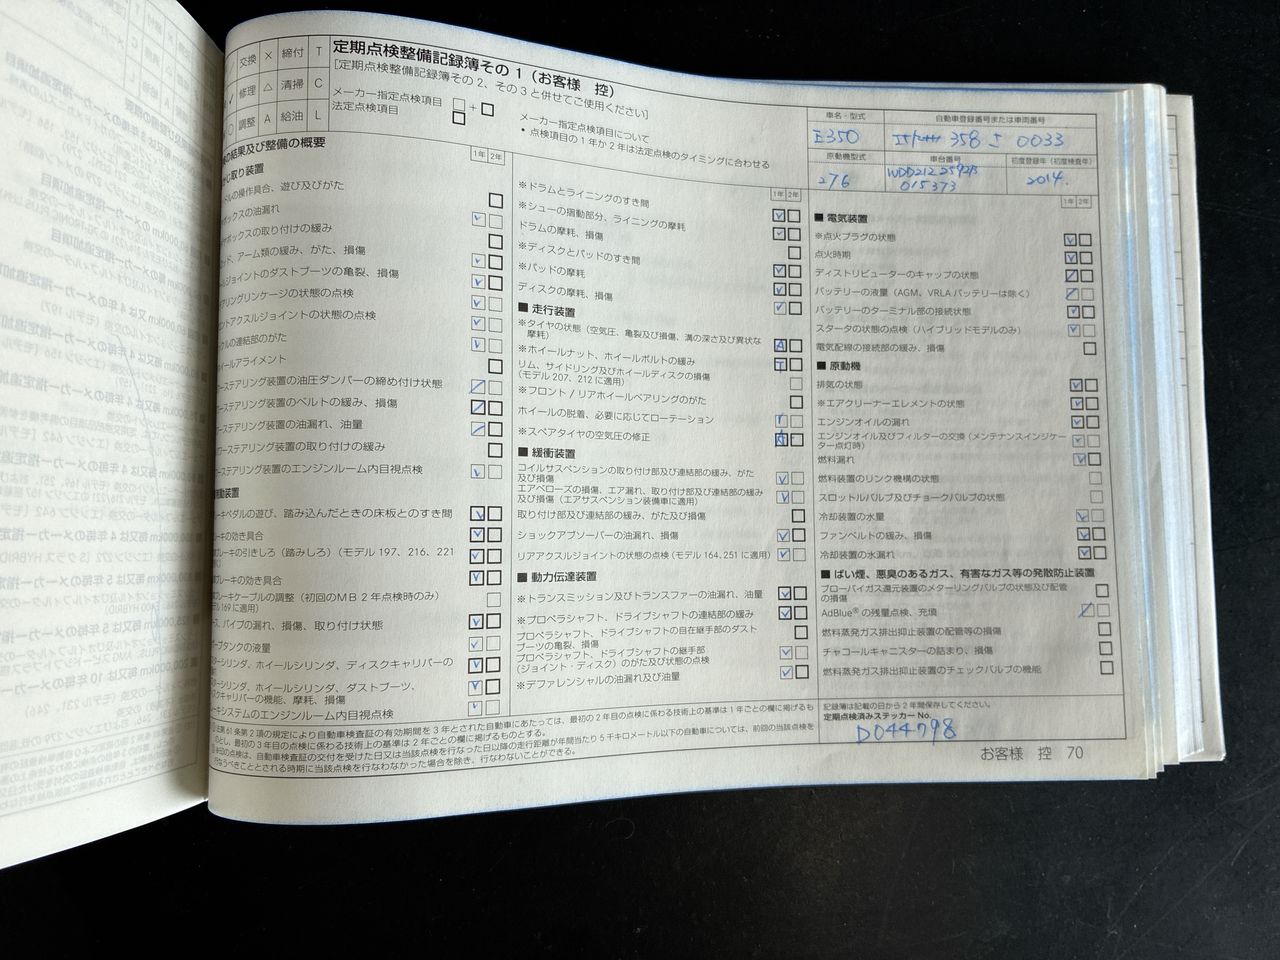 交換 × 締付 T
修理 △ 清掃 C
調整 A 給油 L
定期点検整備記録簿その1（お客様 控）
［定期点検整備記録簿その2、その3と併せてご使用ください］
メーカー指定点検項目 □ + □
法定点検項目 □
メーカー指定点検項目について
• 点検項目の1年か2年は法定点検のタイミングに合わせる
車名・型式
E350
自動車登録番号または車両番号
358 0033
原動機型式
276
車台番号
WDD212
015373
初度登録年（初度検査年）
2014.
の結果及び整備の概要
1年 2年
かじ取り装置
ドルの操作具合、遊び及びがた
ボックスの油漏れ
ボックスの取り付けの緩み
ッド、アーム類の緩み、がた、損傷
ジョイントのダストブーツの亀裂、損傷
アリングリンケージの状態の点検
ントアクスルジョイントの状態の点検
クルの連結部のがた
ールアライメント
ーステアリング装置の油圧ダンパーの締め付け状態
ーステアリング装置のベルトの緩み、損傷
ーステアリング装置の油漏れ、油量
ーステアリング装置の取り付けの緩み
ーステアリング装置のエンジンルーム内目視点検
制動装置
ーキペダルの遊び、踏み込んだときの床板とのすき間
ーキの効き具合
ブレーキの引きしろ（踏みしろ）（モデル 197、216、221
ブレーキの効き具合
ブレーキケーブルの調整（初回のMB2年点検時のみ）
デル169に適用）
ース、パイプの漏れ、損傷、取り付け状態
ーブタンクの液量
ーシリンダ、ホイールシリンダ、ディスクキャリパーの
ーシリンダ、ホイールシリンダ、ダストブーツ、
スクキャリパーの機能、摩耗、損傷
ーキシステムのエンジンルーム内目視点検
1年 2年
※ドラムとライニングのすき間
※シューの摺動部分、ライニングの摩耗
ドラムの摩耗、損傷
※ディスクとパッドのすき間
※パッドの摩耗
ディスクの摩耗、損傷
■ 走行装置
※タイヤの状態（空気圧、亀裂及び損傷、溝の深さ及び異状な
摩耗） A
※ホイールナット、ホイールボルトの緩み T
リム、サイドリング及びホイールディスクの損傷
（モデル 207、212 に適用）
※フロント / リアホイールベアリングのがた
ホイールの脱着、必要に応じてローテーション
※スペアタイヤの空気圧の修正
■ 緩衝装置
コイルサスペンションの取り付け部及び連結部の緩み、がた
及び損傷
エアベローズの損傷、エア漏れ、取り付け部及び連結部の緩み
及び損傷（エアサスペンション装備車に適用）
取り付け部及び連結部の緩み、がた及び損傷
ショックアブソーバーの油漏れ、損傷
リアアクスルジョイントの状態の点検（モデル 164, 251 に適用）
■ 動力伝達装置
※トランスミッション及びトランスファーの油漏れ、油量
※プロペラシャフト、ドライブシャフトの連結部の緩み
プロペラシャフト、ドライブシャフトの自在継手部のダスト
ブーツの亀裂、損傷
プロペラシャフト、ドライブシャフトの継手部
（ジョイント・ディスク）のがた及び状態の点検
※デファレンシャルの油漏れ及び油量
1年 2年
■ 電気装置
※点火プラグの状態
点火時期
ディストリビューターのキャップの状態
バッテリーの液量（AGM、VRLA バッテリーは除く）
バッテリーのターミナル部の接続状態
スタータの状態の点検（ハイブリッドモデルのみ）
電気配線の接続部の緩み、損傷
■ 原動機
排気の状態
※エアクリーナーエレメントの状態
エンジンオイルの漏れ
エンジンオイル及びフィルターの交換（メンテナンスインジケー
ター点灯時）
燃料漏れ
燃料装置のリンク機構の状態
スロットルバルブ及びチョークバルブの状態
冷却装置の水量
ファンベルトの緩み、損傷
冷却装置の水漏れ
■ ばい煙、悪臭のあるガス、有害なガス等の発散防止装置
ブローバイガス還元装置のメターリングバルブの状態及び配管
の損傷
AdBlue®の残量点検、充填
燃料蒸発ガス排出抑止装置の配管等の損傷
チャコールキャニスターの詰まり、損傷
燃料蒸発ガス排出抑止装置のチェックバルブの機能
法第 61 条第 2 項の規定により自動車検査証の有効期間を 3 年とされた自動車にあたっては、最初の 2 年目の点検に係わる技術上の基準は 1 年ごとの欄に掲げるも
のとし、最初の 3 年目の点検に係わる技術上の基準は 2 年ごとの欄に掲げるものとする。
回の点検は、自動車検査証の交付を受けた日又は当該点検を行なった日以降の走行距離が年間当たり 5 千キロメートル以下の自動車については、前回の当該点検を
行なうべきこととされる時期に当該点検を行なわなかった場合を除き、行なわないことができる。
記録簿は記載の日から 2 年間保存してください。
定期点検済みステッカー No.
D044798
お客様 控 70